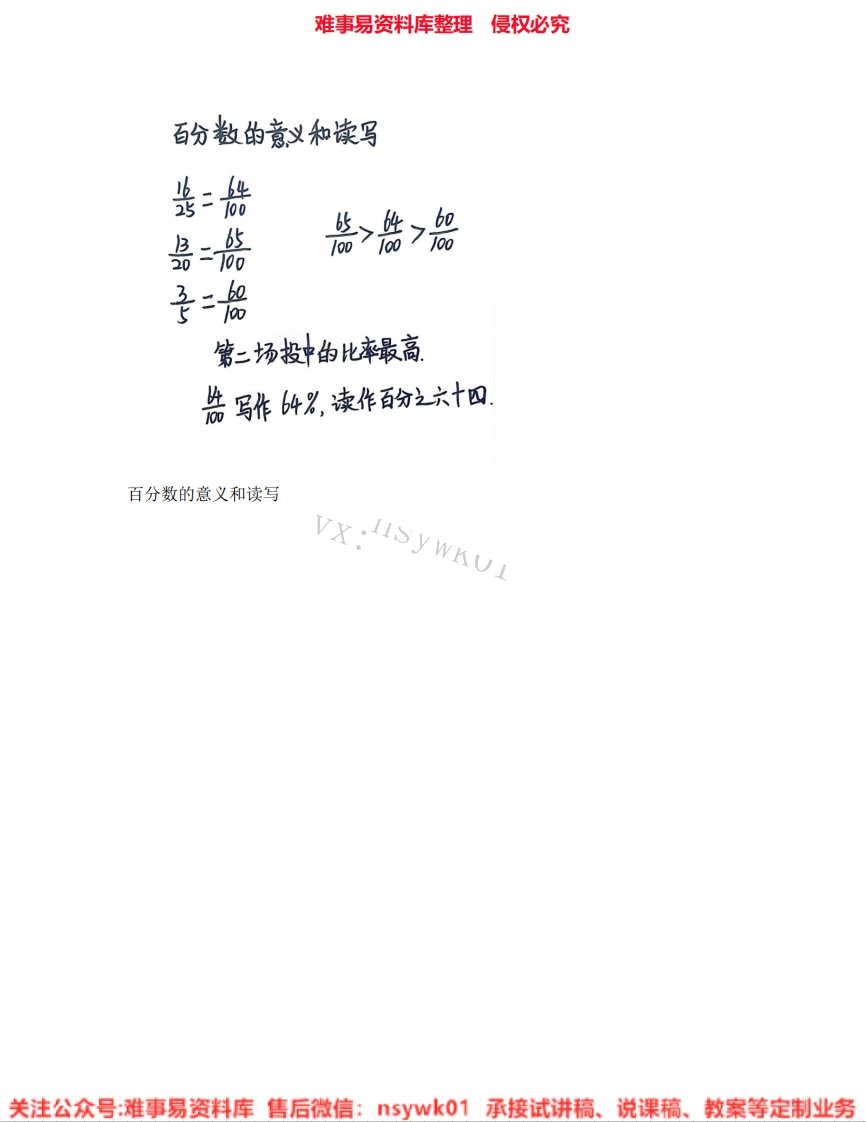 难事易资料库整理 侵权必究
百分数的意义和读写
16/25 = 64/100
13/20 = 65/100
3/5 = 60/100
65/100 > 64/100 > 60/100
第二场投中的比率最高.
64/100 写作 64%, 读作百分之六十四.
百分数的意义和读写
VX: nsywk01
关注公众号:难事易资料库 售后微信：nsywk01 承接试讲稿、说课稿、教案等定制业务